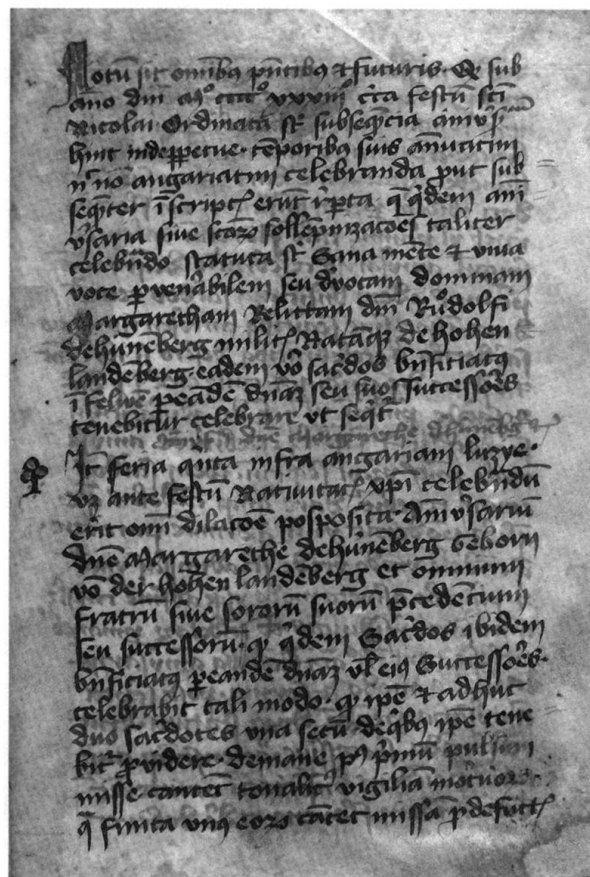 Notū sit omībꝫ pn̄tibꝫ ⁊ futuris · Qꝫ sub
año dnī Mº ccccº xxxiiiº cͥca festū scī
Nicolai Ordinata sͭ subseqn̄cia
hinc inde ꝑpetue · tēporibꝫ suis añuatim
angariatim celebranda put sub
seqn̄ter īscriptꝭ erūt qͥdem añi
vͥsaria siue sollēpnizacōes taliter
celebrādo statuta sͭ Sana mēte ⁊ viua
voce ꝑ venͣabilem seu dͥuotam dominam
Margaretham Relictam dnī Růdolfi
de hünēberg militꝭ Natāqꝫ de hohen
landēberg · eadem vͦo sacͥdos bn̄ficiatꝰ
ī ꝑ eādē dn̄aꝫ seu suos successōꝛes
tenebitur celebrare vt seqͥtͬ
Itͫ feria qͥnta infra angariam lucye ·
vꝫ ante festū Natiuitatꝭ xp̄i celebrādū
erit omī dilacōe posposita · Añiuͥsariū
dn̄e Margarethe de hünēberg Geborn̄
vō der hohen landēberg et omnium
fratrū siue sororū suorū p̄cedēcium
seu successorū · qꝫ qͥdem Sacͥdos ibidem
bn̄ficiatꝰ ꝑ eandē dn̄aꝫ vl̄ eiꝰ Successōꝛes ·
celebrabit tali modo · qꝫ ip̄e ⁊ adhuc
duo sacͥdotes vna secū · de qͥbꝫ ip̄e tene
bitͬ ꝓuidere · de mane pꝰ pͥmū pulsum
misse · cantēt vigiliā moͬtuoꝝ ·
qͣ finita vnꝰ eoꝝ cātet missā ꝓ defūctꝭ